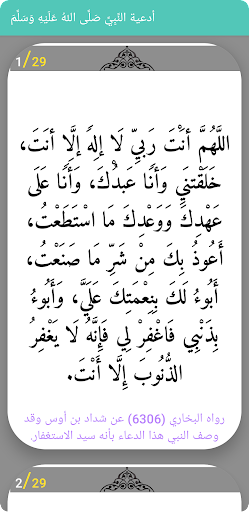 أدعية النَّبِيِّ صَلَّى اللهُ عَلَيْهِ وَسَلَّمْ
1/29
اللَّهُمَّ أَنْتَ رَبِيِّ لَا إِلهَ إلَّا أنتَ،
خَلَقْتنَيِ وَأَنَا عَبدُكَ، وَأَنَا عَلَى
عَهْدِكَ وَوَعْدِكَ مَا اسْتَطَعْتُ،
أَعُوذُ بِكَ مِنْ شَرِّ مَا صَنَعْتُ،
أَبُوءُ لَكَ بِنِعْمَتِكَ عَلَيَّ، وَأَبُوءُ
بِذَنْبِي فَاغْفِرْ لِي فَإِنَّهُ لَا يَغْفرُ
الذُّنُوبَ إِلَّا أَنْتَ.
رواه البخاري (6306) عن شداد بن أوس وقد
وصف النبي هذا الدعاء بأنه سيد الاستغفار.
2/29